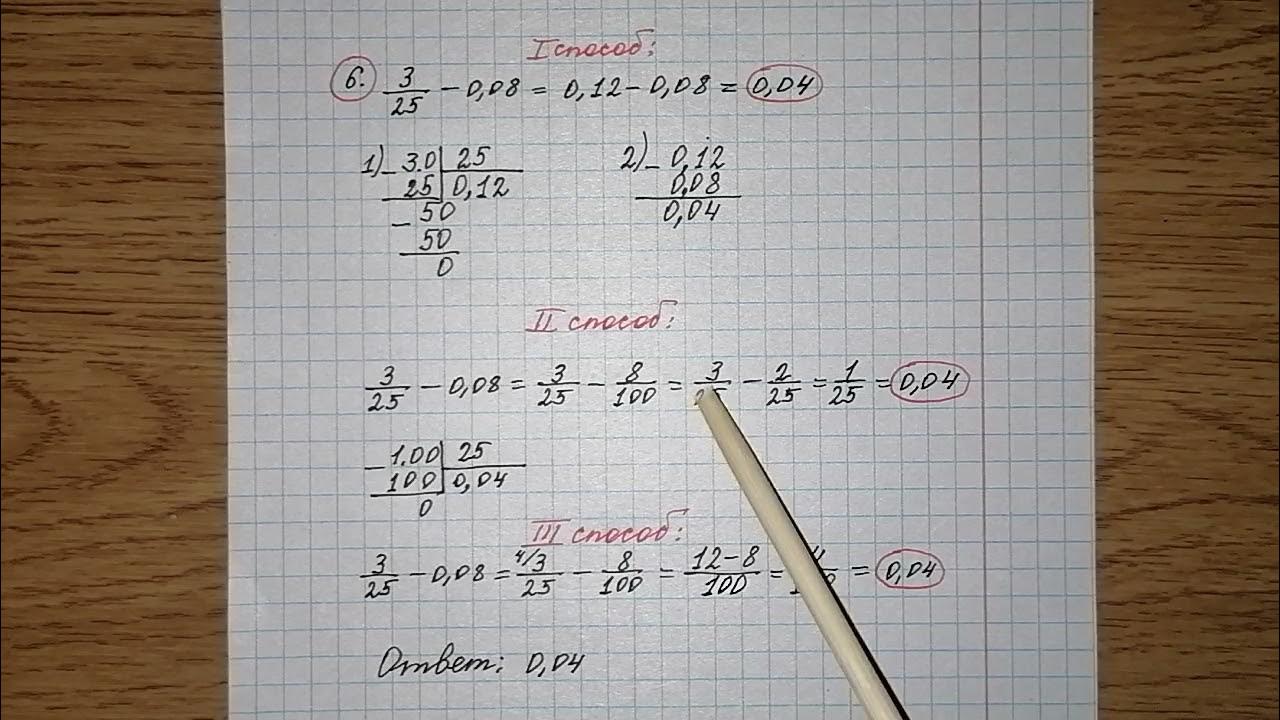 I способ:
6. 3/25 - 0,08 = 0,12 - 0,08 = 0,04
1) - 3.0 | 25
25 | 0,12
- 50
50
0
2) - 0,12
0,08
0,04
II способ:
3/25 - 0,08 = 3/25 - 8/100 = 3/25 - 2/25 = 1/25 = 0,04
- 1.00 | 25
100 | 0,04
0
III способ:
3/25 - 0,08 = 4/3/25 - 8/100 = (12-8)/100 = = 0,04
Ответ: 0,04